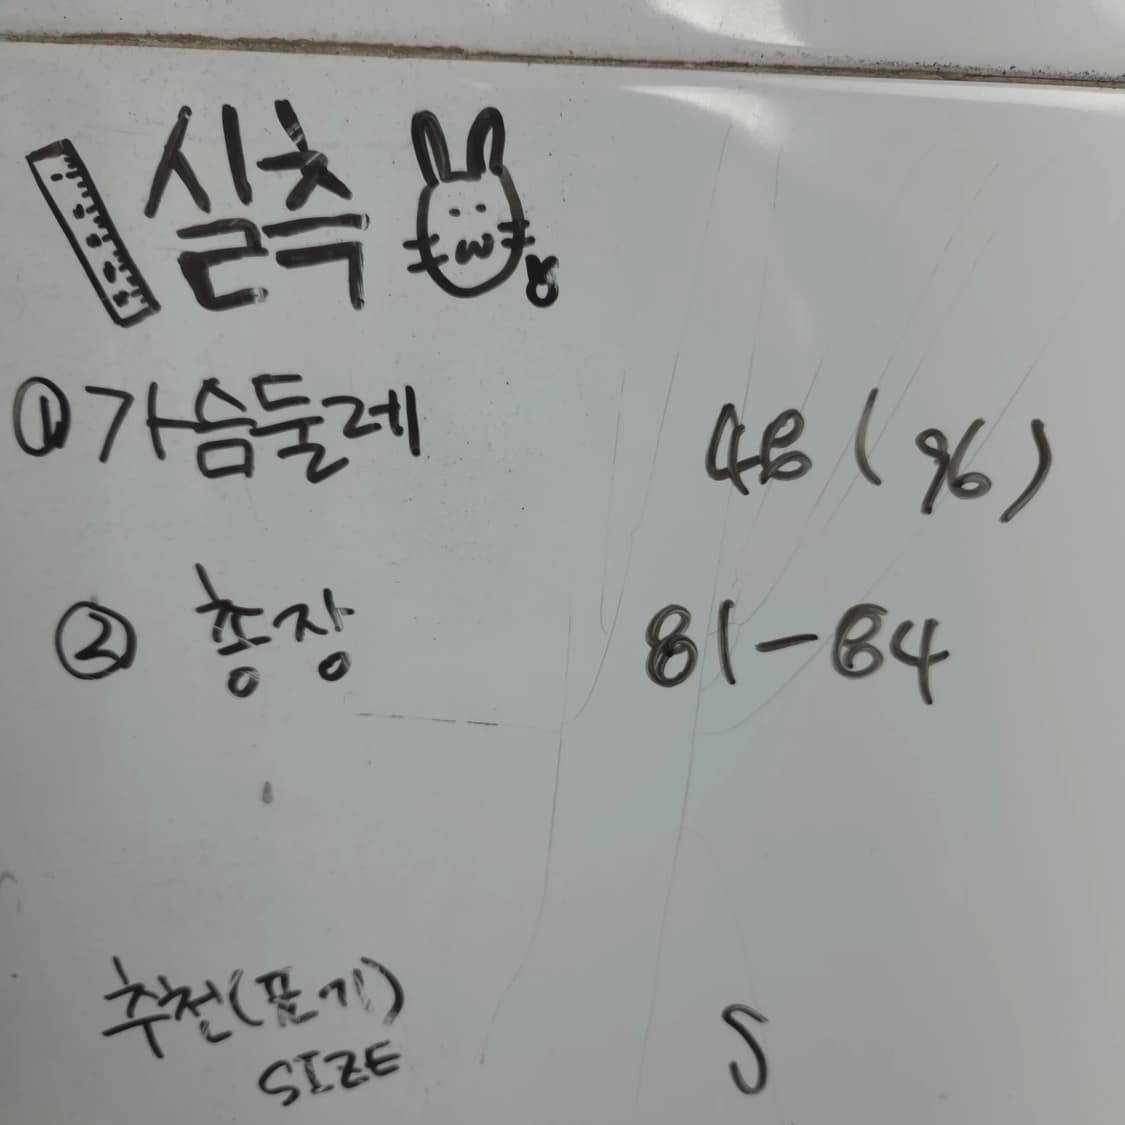 실측
① 가슴둘레 48 (96)
② 총장 81-84
추천(표기) S
SIZE